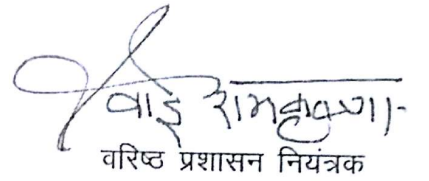 वाई रामकृष्णा
वरिष्ठ प्रशासन नियंत्रक